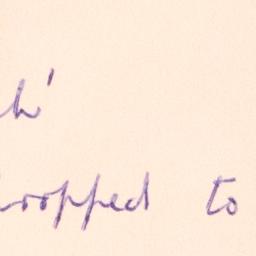 h'
ropped to